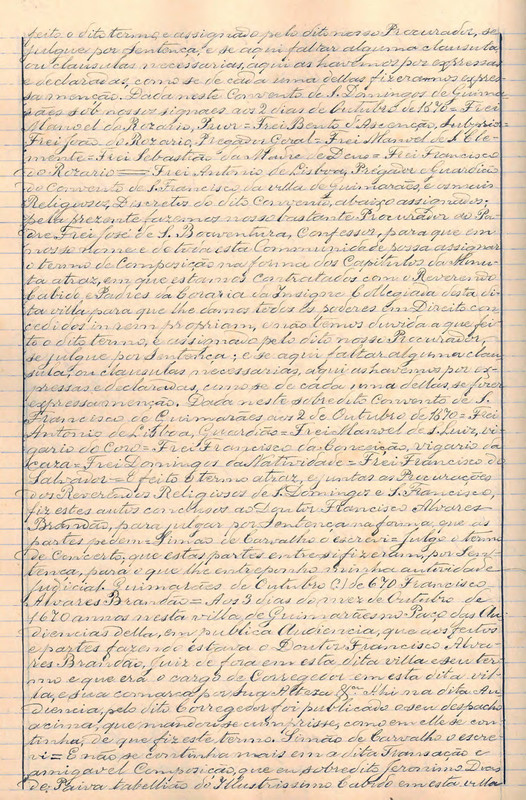 feito o dito termo, e assignado pelo dito nosso Procurador, se
julgue por sentença, e se aqui faltar alguma clausula,
ou clausulas necessarias, aqui as havemos por expressas
e declaradas, como se de cada uma dellas fizeramos expres-
sa menção. Dada neste Convento de S. Domingos de Guima-
rães sob nossos signaes aos 2 dias de Outubro de 1670 = Frei
Manoel do Rozario, Prior = Frei Bento d'Ascenção, Subprior =
Frei João do Rozario, Pregador Geral = Frei Manoel de S. Cle-
mente = Frei Sebastião da Madre de Deus = Frei Francisco
do Rozario = Frei Antonio de Lisboa, Pregador e Guardião
do Convento de S. Francisco da villa de Guimarães, e os mais
Religiosos, Discretos do dito Convento, abaixo assignados,
pela prezente fazemos nosso bastante Procurador ao Pa-
dre Frei José de S. Boaventura, Confessor, para que em
nosso nome e de toda esta Communidade possa assignar
o termo de Composição na forma dos Capitulos da Minu-
ta atraz, em que estamos contratados com o Reverendo
Cabido, e Padres da Coraria da Insigne Collegiada desta di-
ta villa para que lhe damos todos os poderes em Direito con-
cedidos in rem propriam, e não temos duvida a que fei-
to o dito termo, e assignado pelo dito nosso Procurador,
se julgue por Sentença; e se aqui faltar alguma clau-
sula, ou clausulas necessarias, aqui as havemos por ex-
pressas e declaradas, como se de cada uma dellas, se fizera
expressa menção. Dada neste sobredito Convento de S.
Francisco de Guimarães aos 2 de Outubro de 1670 = Frei
Antonio de Lisboa, Guardião = Frei Manoel de S. Luiz, vi-
gario do Coro = Frei Francisco da Conceição, vigario da
caza = Frei Domingos da Natividade = Frei Francisco do
Salvador = E feito o termo atraz, e juntas as Procurações
dos Reverendos Religiosos de S. Domingos e S. Francisco,
fiz estes autos conclusos ao Doutor Francisco Alvares
Brandão, para julgar por Sentença na forma, que as
partes pedem. Simão de Carvalho o escrevi = Julgo o termo
de Concerto, que estas partes entre si fizeram, por Sen-
tença, para o que lhe entreponho minha autoridade
judicial. Guimarães de Outubro 2 de 670 Francisco
Alvares Brandão = Aos 3 dias do mez de Outubro de
1670 annos nesta villa de Guimarães no Paço das Au-
diencias della, em publica Audiencia, que aos feitos
e partes fazendo estava o Doutor Francisco Alva-
res Brandão, Juiz de fora em esta dita villa e seu ter-
mo e que era o cargo de Corregedor em esta dita vil-
la, e sua comarca por Sua Alteza &ª Ahi na dita Au-
diencia, pelo dito Corregedor foi publicado o seu despacho
acima, que mandou se cumprisse, como em elle se con-
tinha, de que fiz este termo. Simão de Carvalho o escre-
vi = E não se continha mais em a dita Transação e
amigavel Composição, que eu sobredito Jeronimo Dias
de Paiva tabellião do Illustrissimo Cabido em esta villa